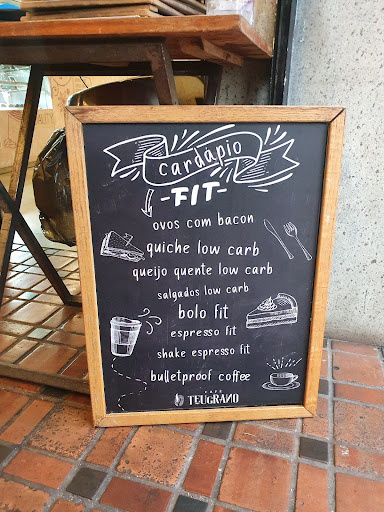 cardápio
-FIT-
ovos com bacon
quiche low carb
queijo quente low carb
salgados low carb
bolo fit
espresso fit
shake espresso fit
bulletproof coffee
CAFÉ
TEUGRANO